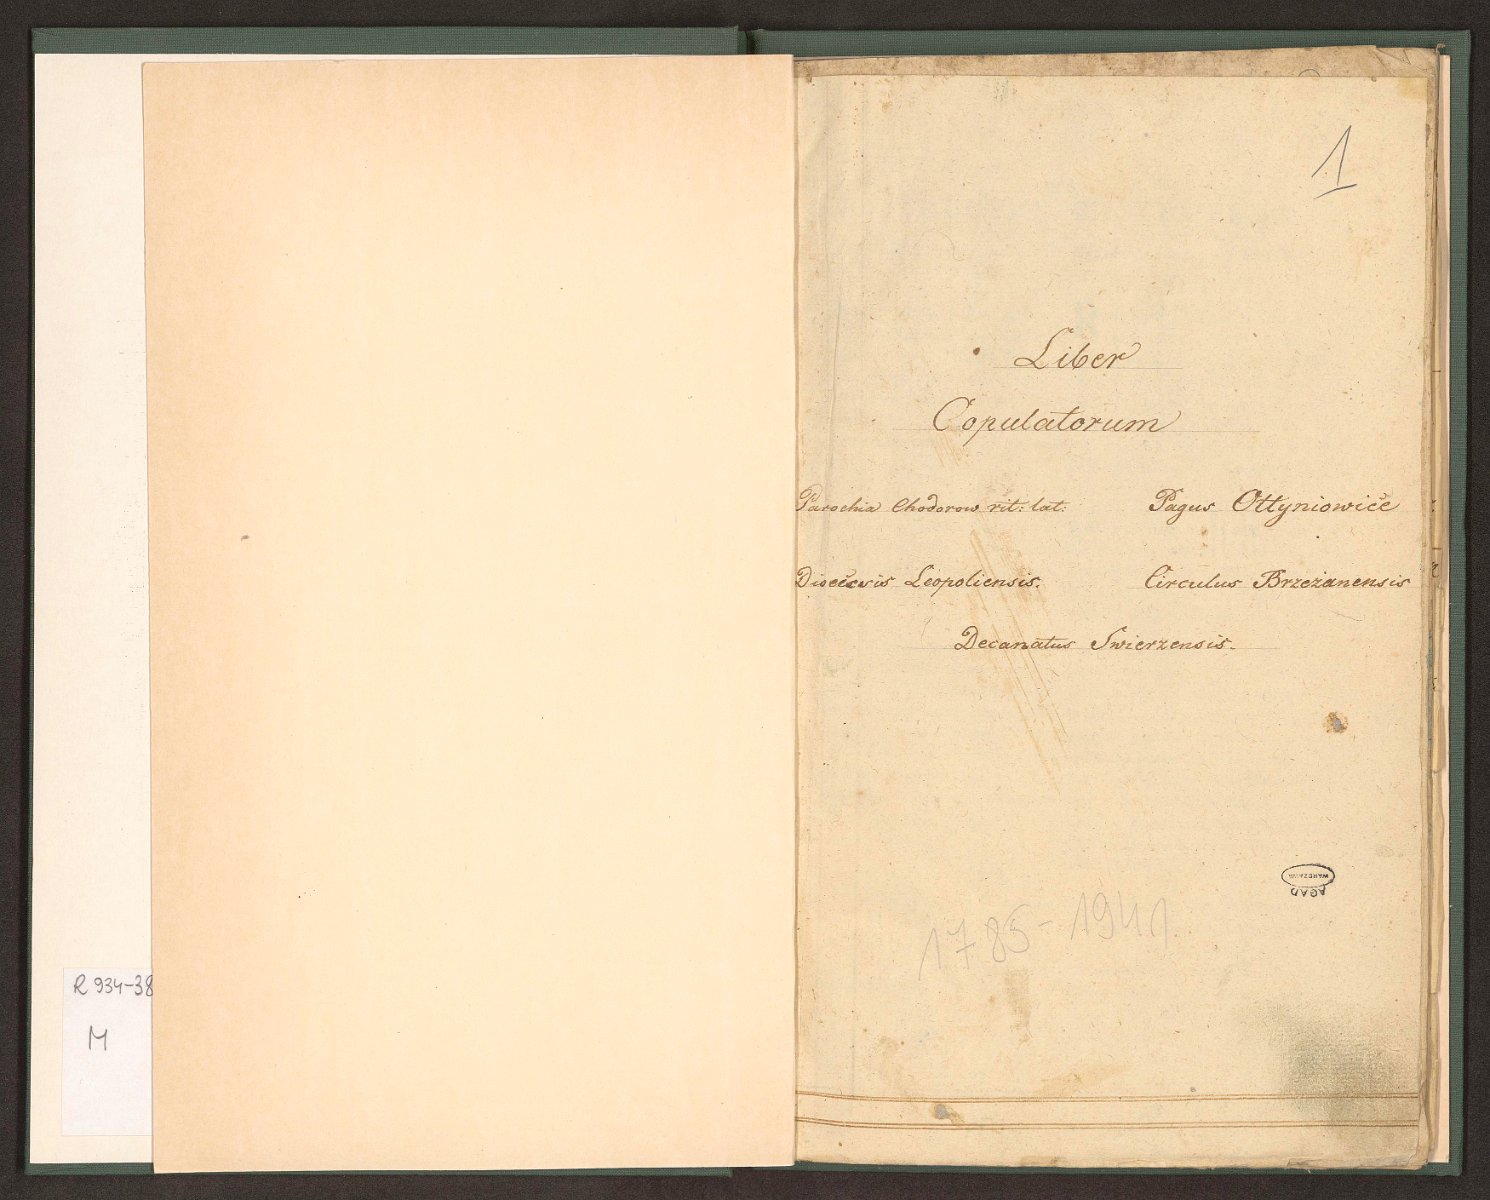 R 934-38
M
1
Liber
Copulatorum
Parochia Chodorow rit: lat: Pagus Ottyniowice
Diocecsis Leopoliensis. Circulus Brzeżanensis
Decanatus Swierzensis.
AGAD
WARSZAWA
1785-1941.